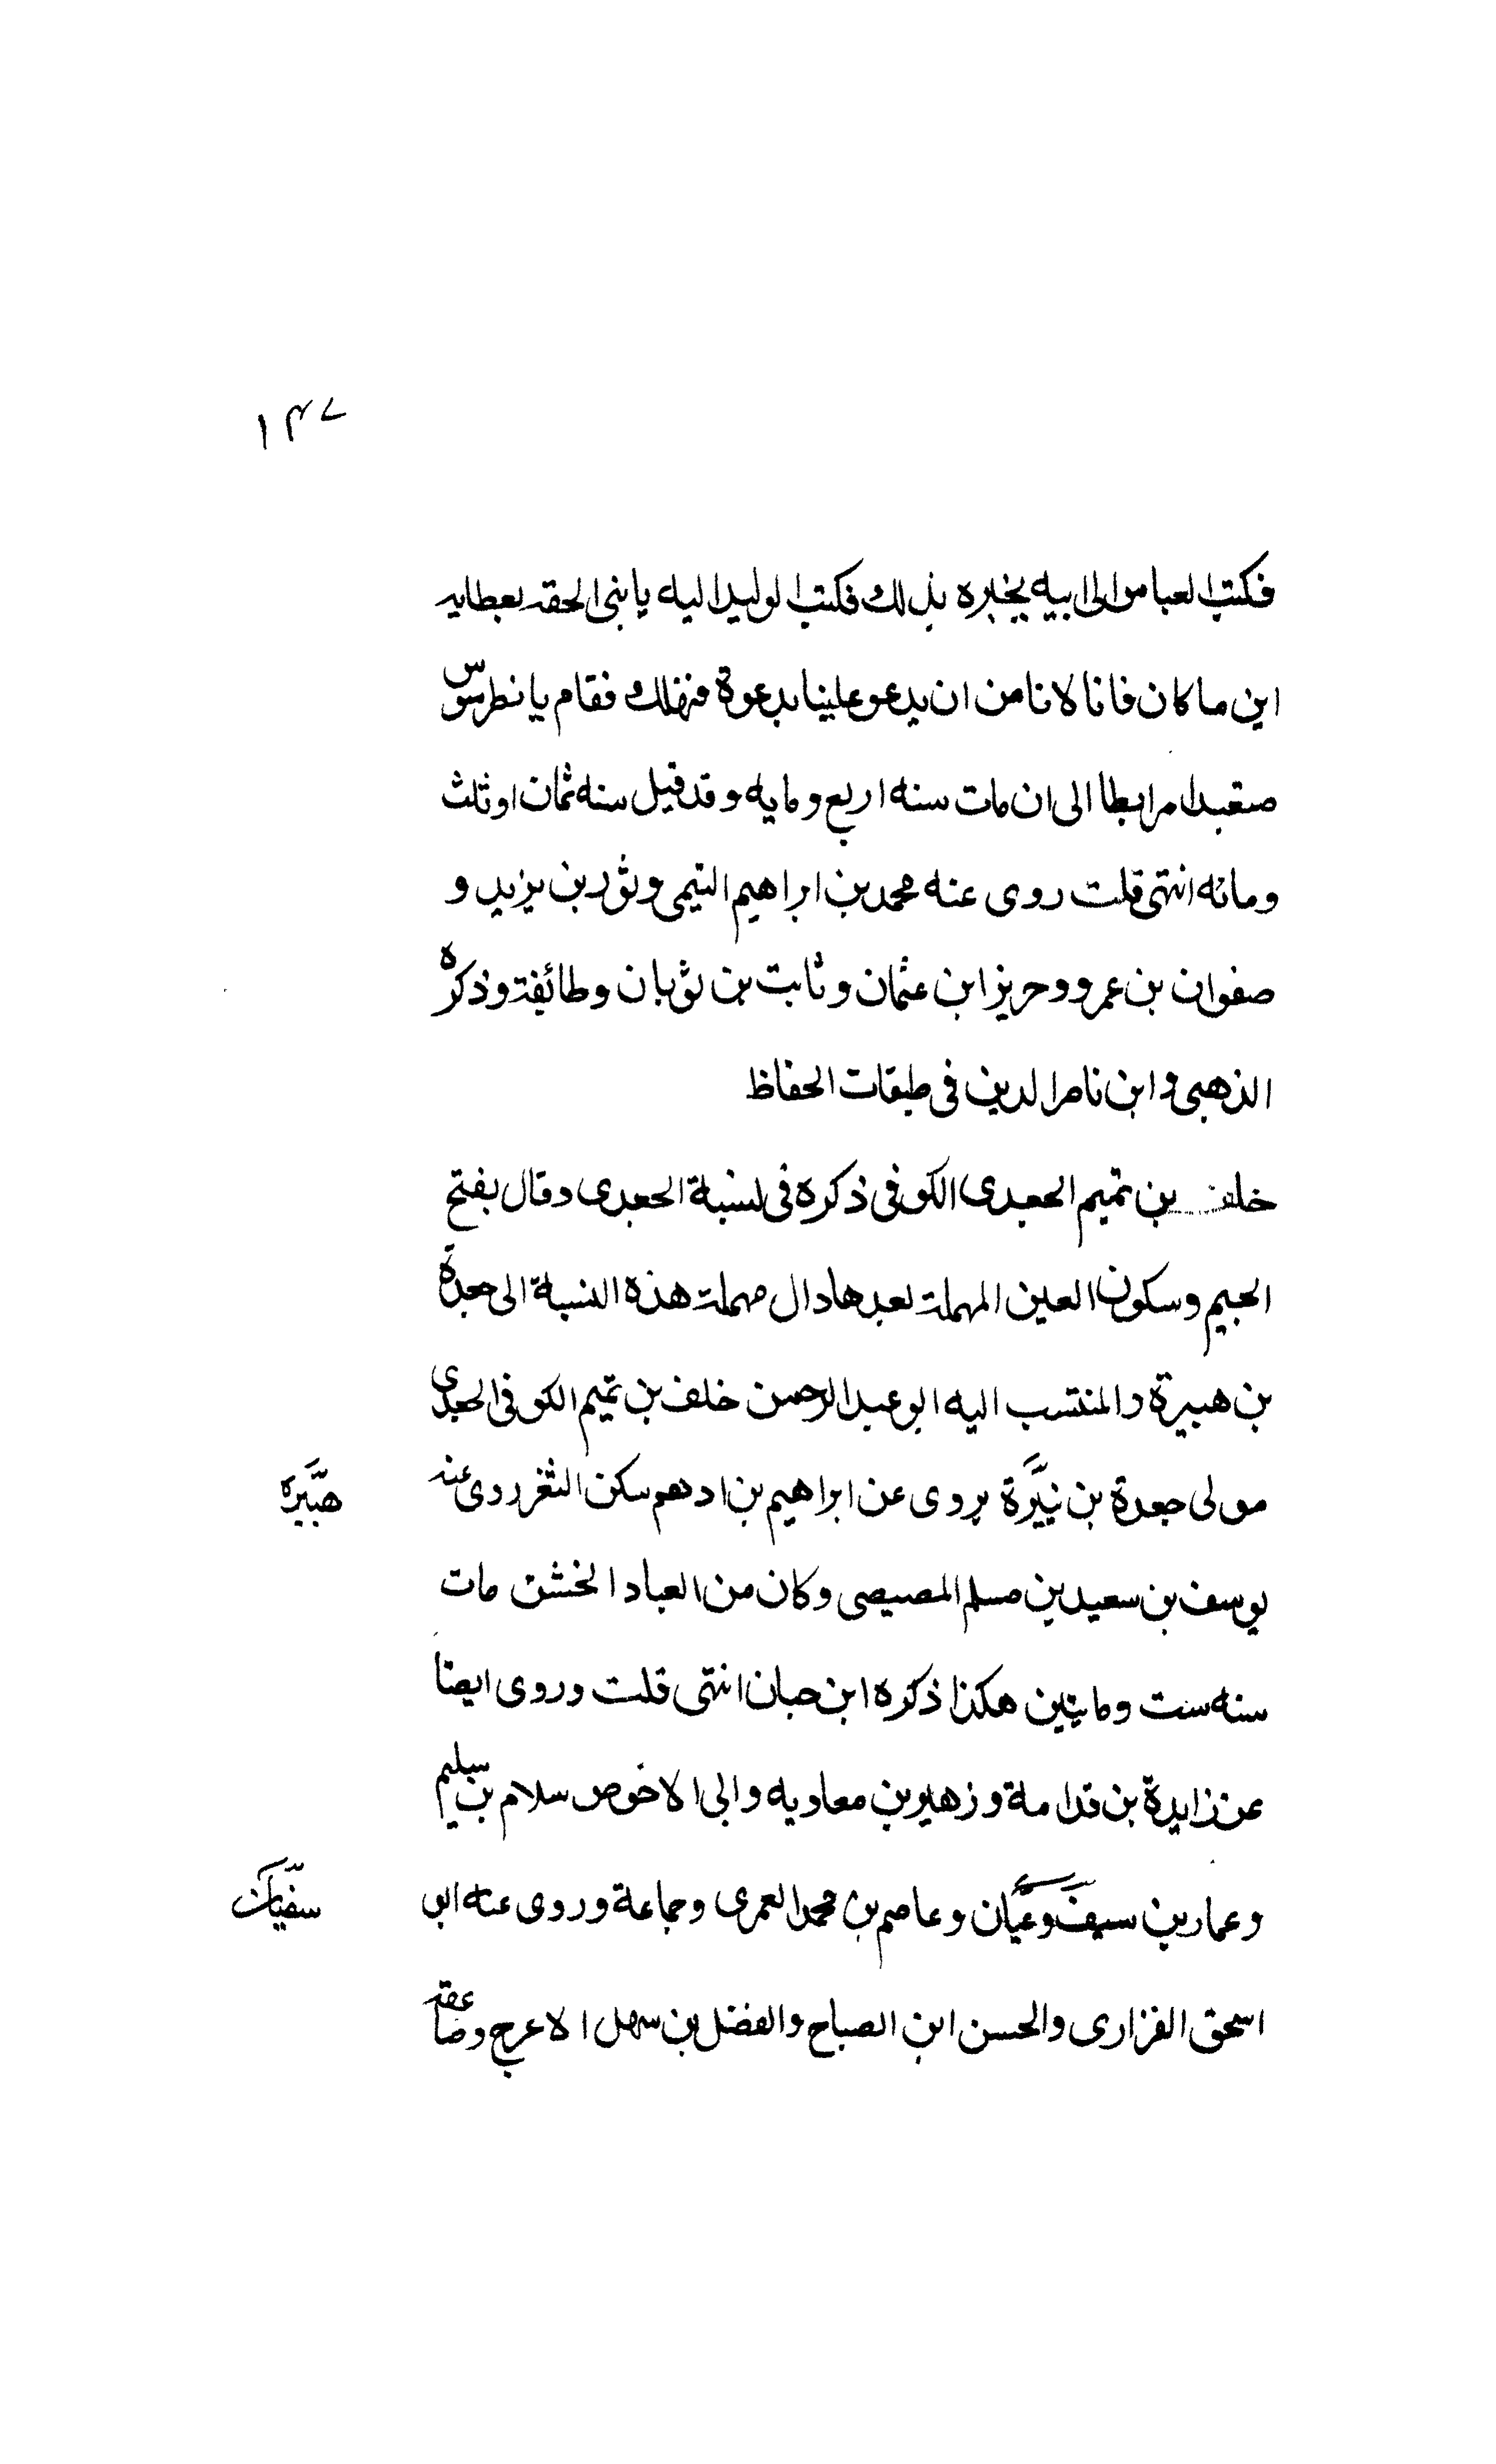 ١٤٧
فكتب العباس الى ابيه يخبره بذلك فكتب الوليد اليه يا بنى الحقه بعطايه
اين ما كان فانا لا نامن ان يدعو علينا بدعوة فنهلك فقام بانطرسوس
متعبدا مرابطا الى ان مات سنه اربع ومايه وقد قيل سنه ثمان او ثلث
ومائه انتهى قلت روى عنه محمد بن ابراهيم التيمى وثور بن يزيد و
صفوان بن عمرو وحريز ابن عثمان وثابت بن ثوبان وطائفة وذكره
الذهبى و ابن ناصر الدين فى طبقات الحفاظ
خلف بن تميم الجعدى الكوفى ذكره فى نسبة الجعدى وقال بفتح
الجيم وسكون العين المهملة بعدها دال مهملة هذه النسبة الى جعدة
بن هبيرة والمنتسب اليه ابو عبد الرحمن خلف بن تميم الكوفى الجعدى
مولى جعدة بن نبيرة يروى عن ابراهيم بن ادهم سكن الثغر روى عنه
هبيره
يوسف بن سعيد بن مسلم المصيصى وكان من العباد الخشن مات
سنه ست وماتين هكذا ذكره ابن حبان انتهى قلت وروى ايضا
عن زايدة بن قدامة و زهير بن معاويه وابى الاخوص سلام بن سليم
وعمار بن سيف و عيان وعاصم بن محمد العمرى وجماعة وروى عنه ابو
سفيان
اسحق الفزارى والحسن ابن الصباح والفضل بن سهل الاعرج و